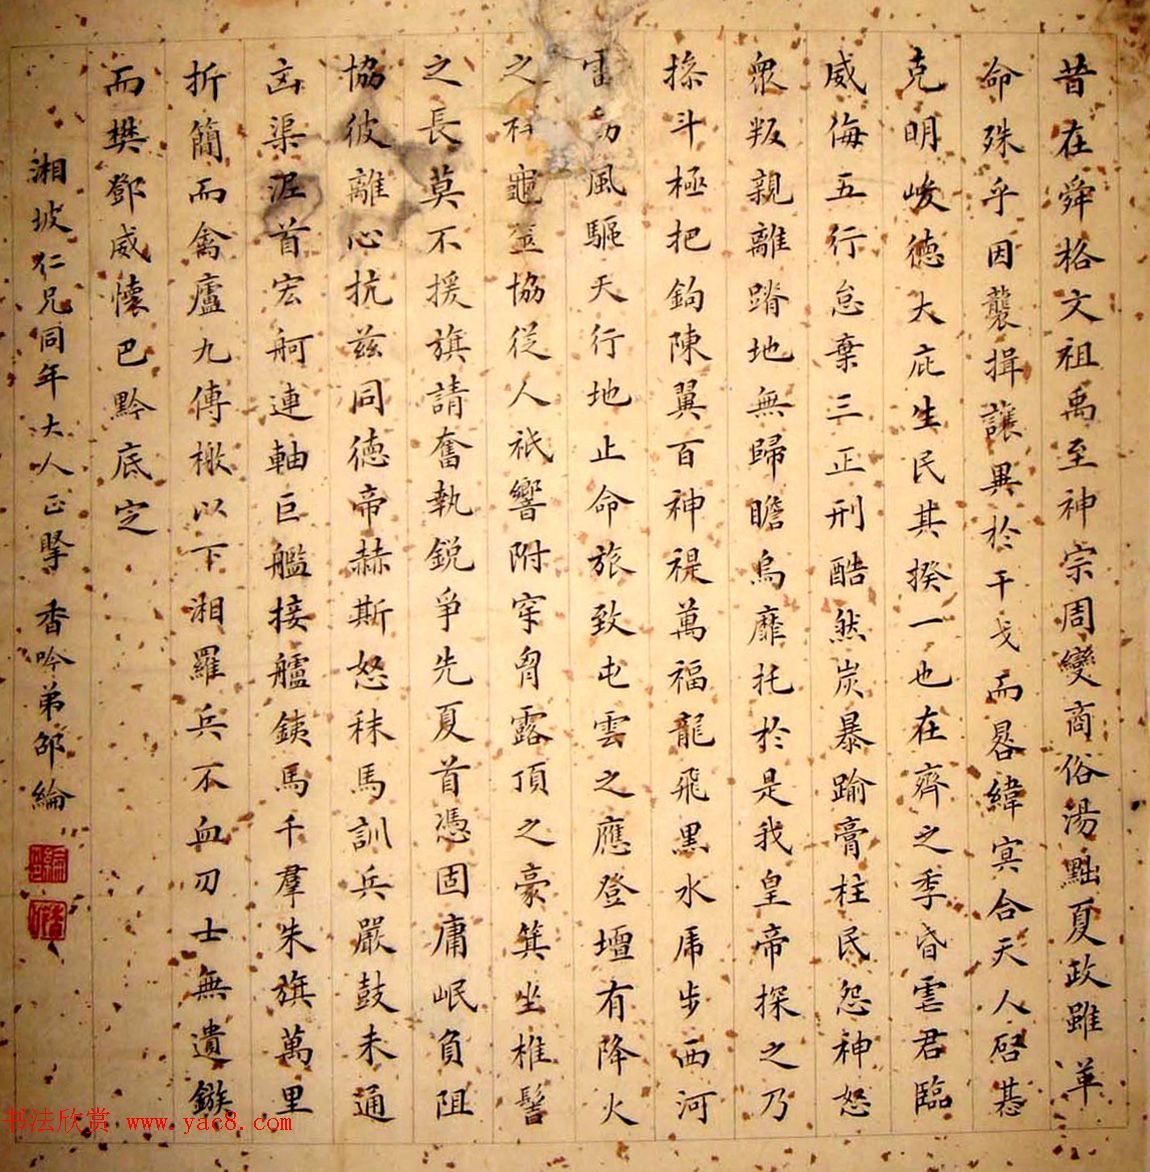 昔在舜格文祖禹至神宗周變商俗湯黜夏政雖革
命殊乎因襲揖讓異於干戈而晷緯冥合天人啓惎
克明峻德大庇生民其揆一也在齊之季昏虐君臨
威侮五行怠棄三正刑酷然炭暴踰膏柱民怨神怒
衆叛親離蹐地無歸瞻烏靡托於是我皇帝探之乃
操斗極把鉤陳翼百神禔萬福龍飛黑水虎步西河
雷動風驅天行地止命旅致屯雲之應登壇有降火
之龜筮協從人祇響附穿胷露頂之豪箕坐椎髻
之長莫不援旗請奮執銳爭先夏首憑固庸岷負阻
協彼離心抗兹同德帝赫斯怒秣馬訓兵嚴鼓未通
凶渠泥首宏舸連軸巨艦接艫銕馬千羣朱旗萬里
折簡而禽廬九傳檄以下湘羅兵不血刃士無遺鏃
而樊鄧威懷巴黔底定
湘坡仁兄同年大人正掔 香吟弟邵綸
书法欣赏 www.yac8.com